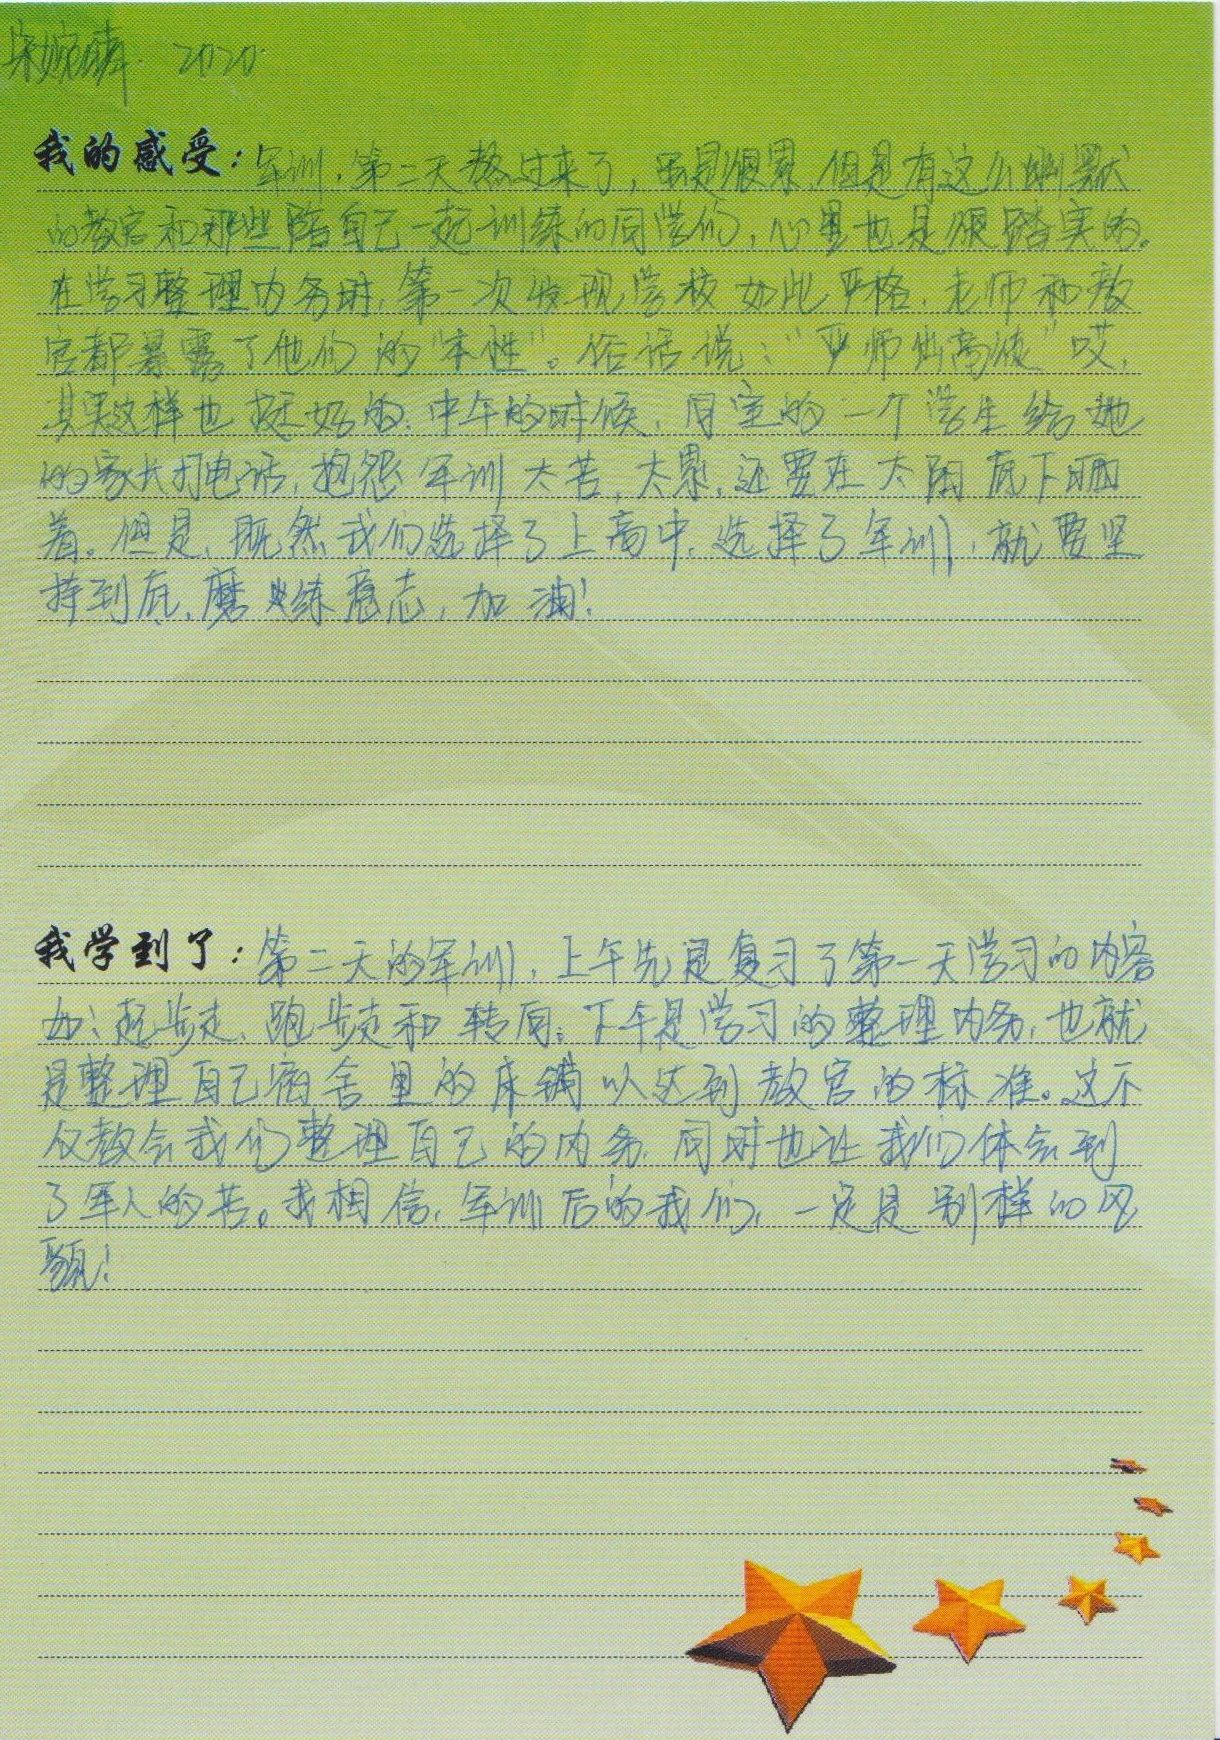 宋婉婷 2020
我的感受：军训，第二天熬过来了，虽是很累，但是有这么幽默
的教官和那些陪自己一起训练的同学们，心里也是很踏实的。
在学习整理内务时，第一次发现学校如此严格，老师和教
官都暴露了他们的“本性”。俗话说：“严师出高徒”哎，
其实这样也挺好的。中午的时候，同室的一个学生给她
的家长打电话，抱怨军训太苦，太累，还要在太阳底下晒
着。但是，既然我们选择了上高中，选择了军训，就要坚
持到底，磨炼意志，加油！
我学到了：第二天的军训，上午先是复习了第一天学习的内容
如：起步走、跑步走和转向；下午是学习的整理内务，也就
是整理自己宿舍里的床铺以达到教官的标准。这不
仅教会我们整理自己的内务，同时也让我们体会到
了军人的苦。我相信，军训后的我们，一定是别样的风
貌！